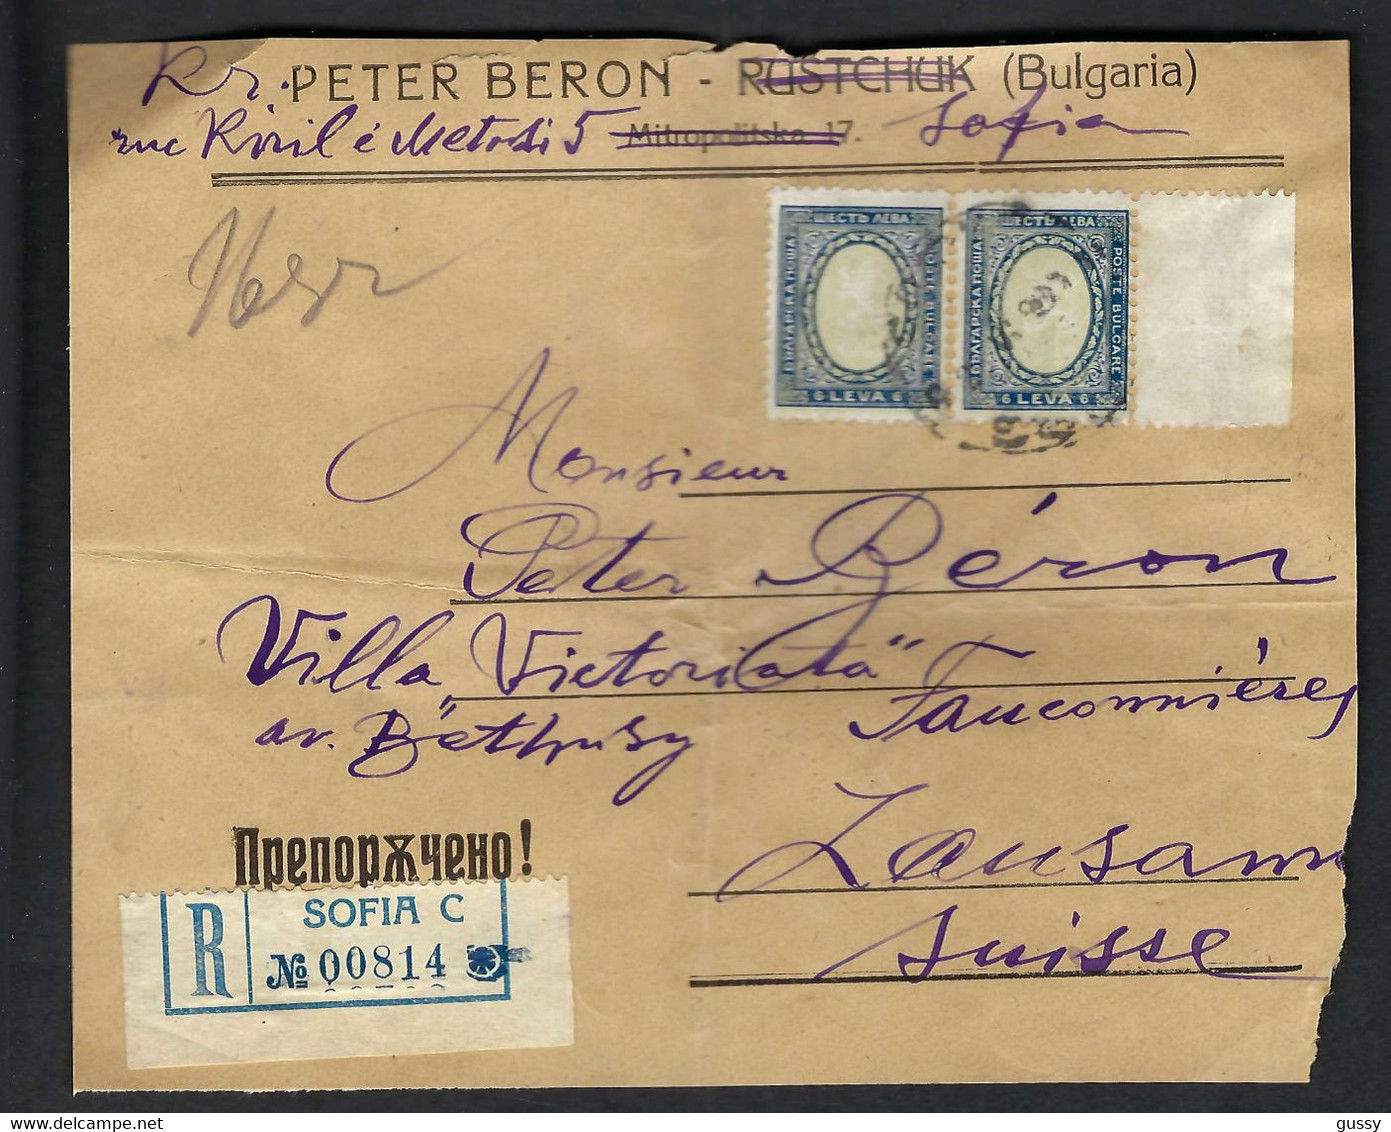 Dr. PETER BERON - RUSTCHUK (Bulgaria)
rue Kiril é Metodi 5 Mitropolitska 17. Sofia
ШЕСТЬ ЛЕВА ШЕСТЬ ЛЕВА
БЪЛГАРСКА ПОЩА POSTE BULGARE БЪЛГАРСКА ПОЩА POSTE BULGARE
6 LEVA 6 6 LEVA 6
Monsieur
Peter Béron
Villa „Victoria"
av. Béthusy Fauconnières
Lausann
Suisse
Препорѫчено!
R SOFIA C
№ 00814
gussy